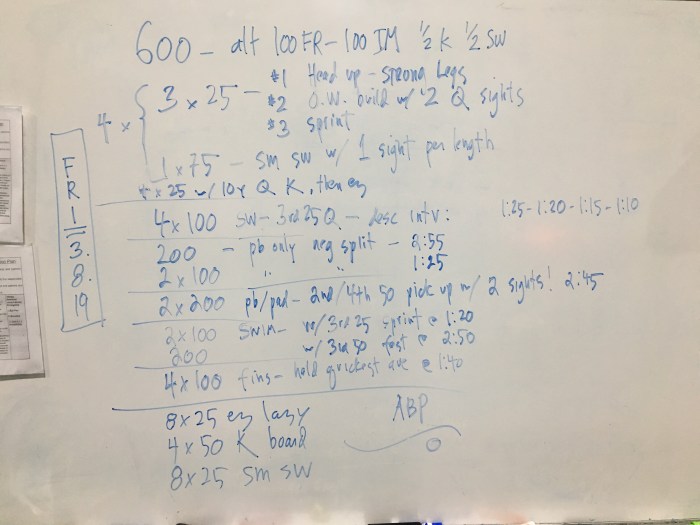 600 - alt 100 FR - 100 IM 1/2 K 1/2 SW
4 x { 3 x 25 - #1 Head up - strong Legs
#2 O.W. build w/ 2 Q sights
#3 sprint
1 x 75 - sm sw w/ 1 sight per length
4 x 25 w/ 10x Q K, then ez
4 x 100 SW - 3rd 25 Q - desc intv: 1:25 - 1:20 - 1:15 - 1:10
200 - pb only neg split - 2:55
2 x 100 " " 1:25
2 x 200 pb/pad - 2nd/4th 50 pick up w/ 2 sights! 2:45
2 x 100 SWIM - w/ 3rd 25 sprint @ 1:20
200 w/ 3rd 50 fast @ 2:50
4 x 100 fins - hold quickest ave @ 1:40
8 x 25 ez lazy
4 x 50 K board
8 x 25 sm sw
ABP
FRI
3.
8.
19